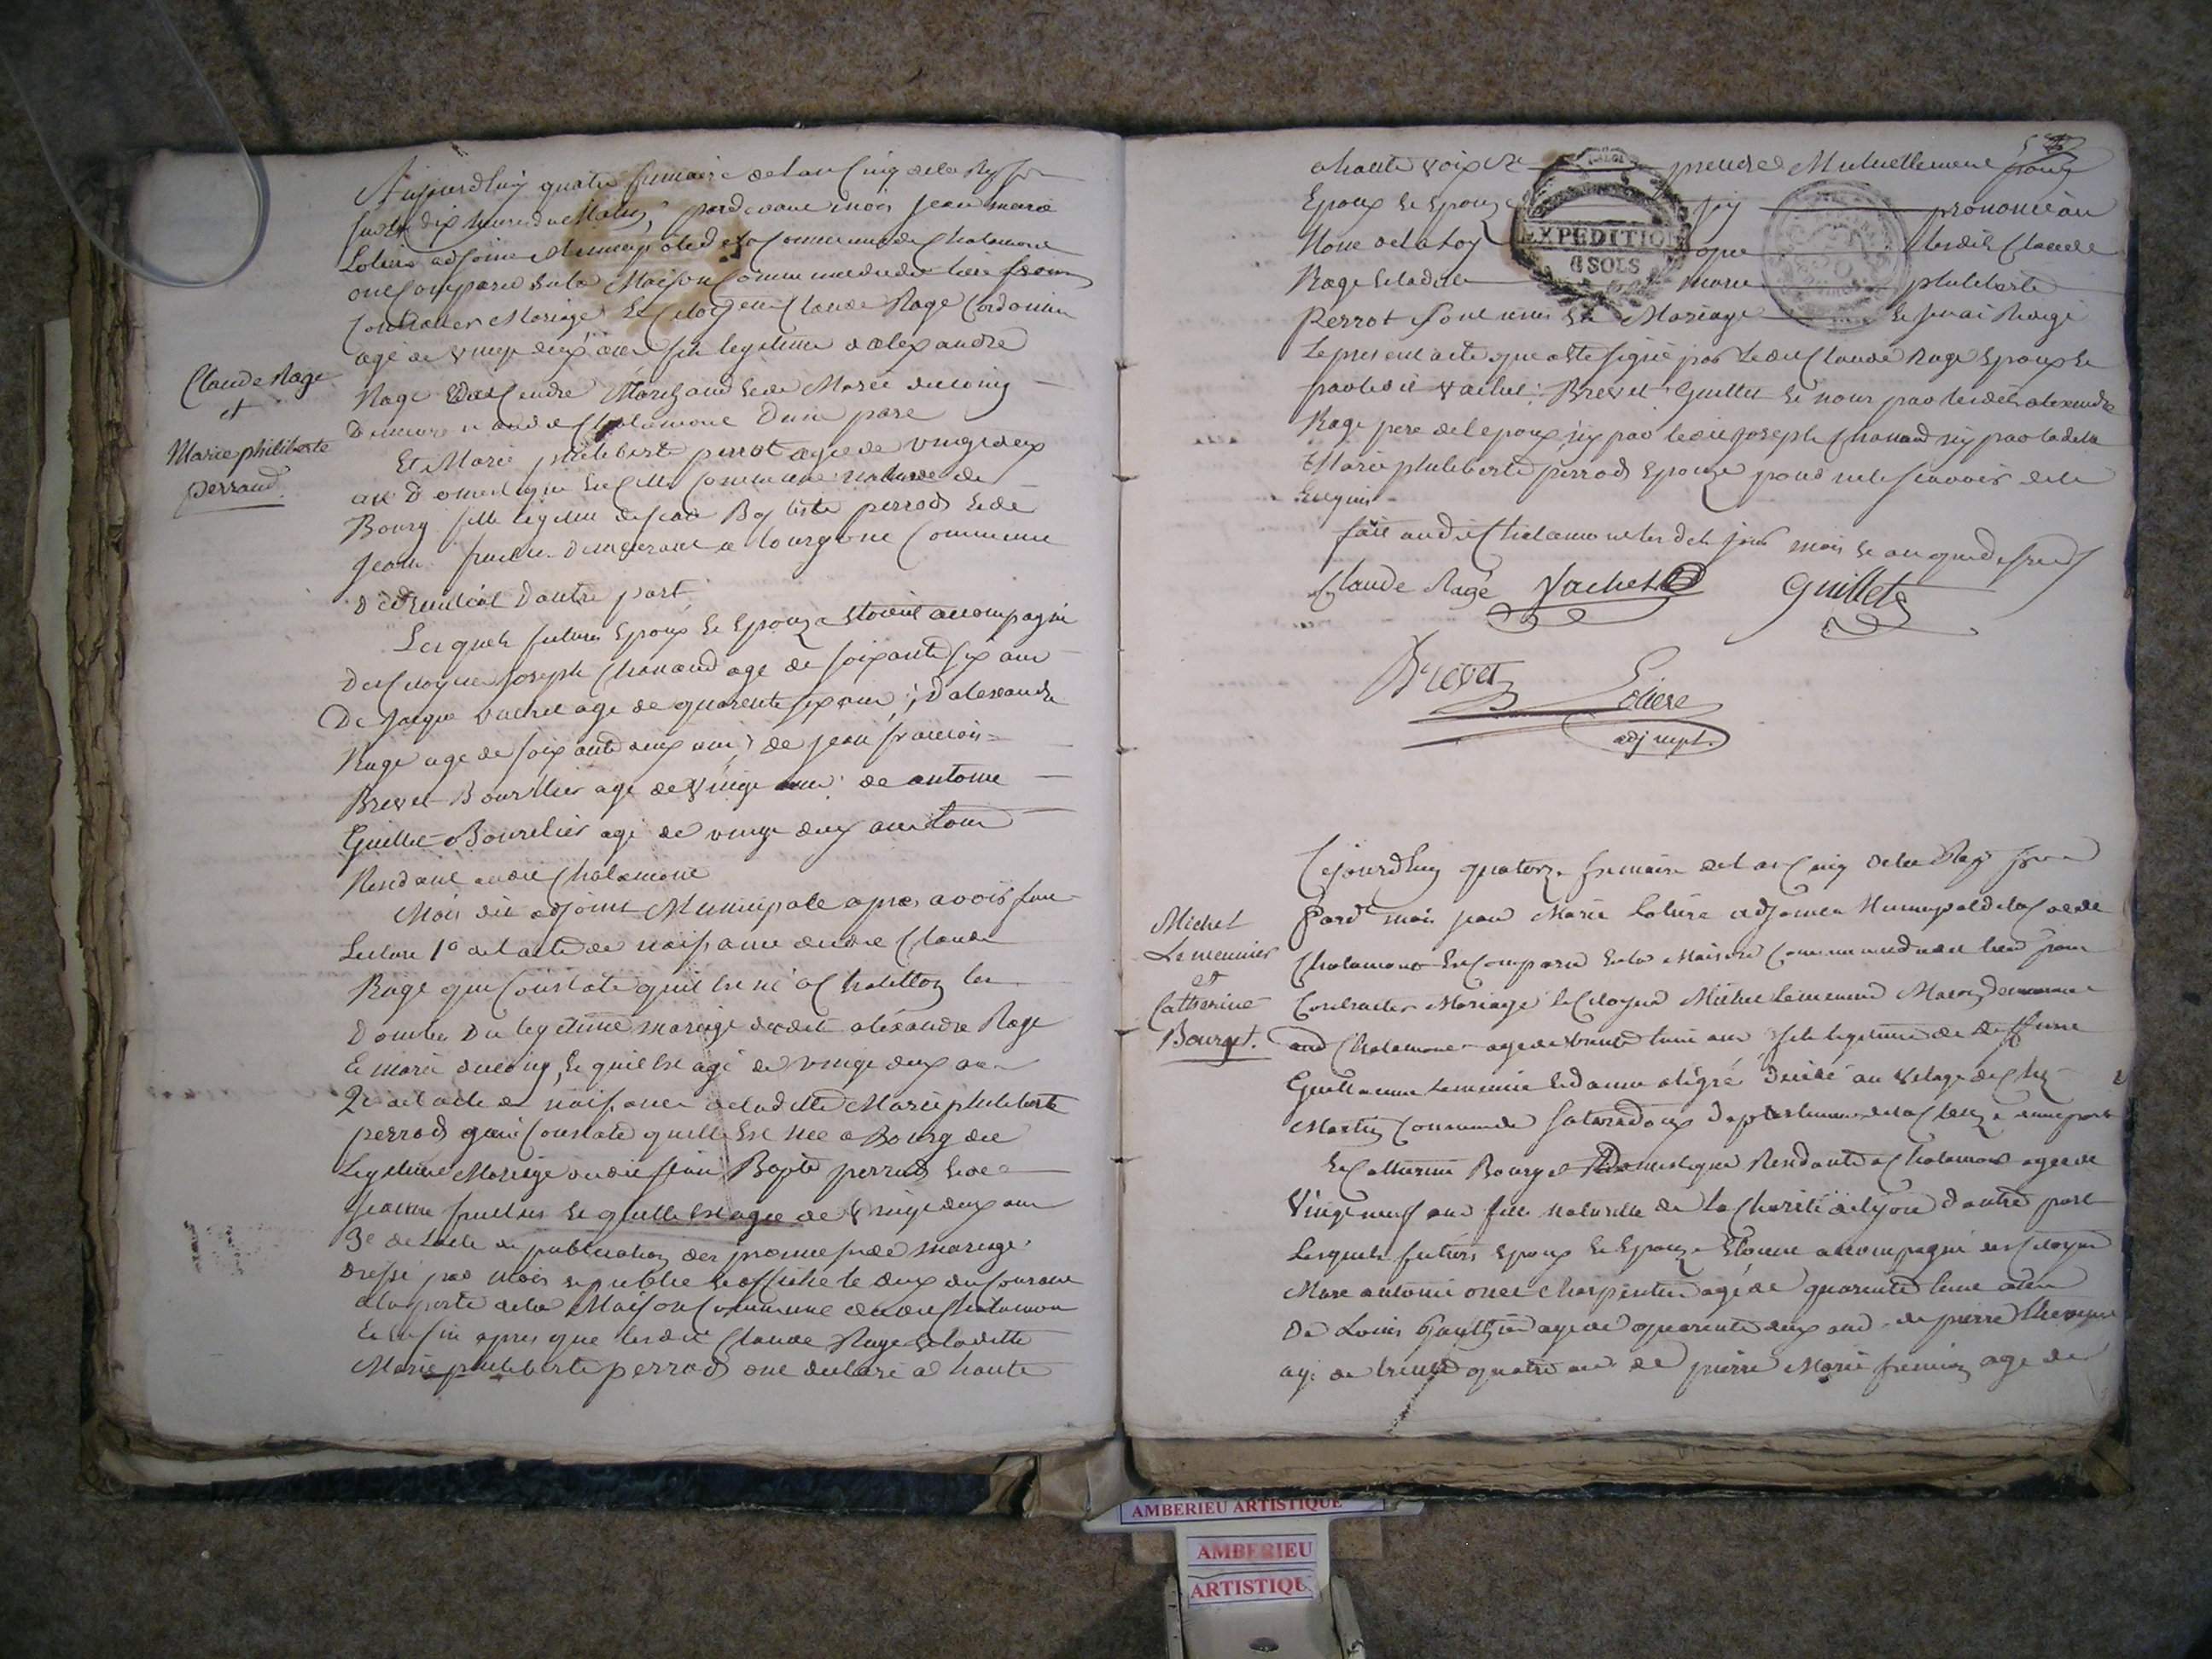 Claude Rage
et
Marie philiberte
perraud.
Aujourdhuy quatre frimaire de lan cinq de la
dix heures du Matin, pardevant mois Jean marie
Loliere adjoint Municipale de la Commune de Chalamont
ont Comparu en la Maison Commune dudit lieu
Contracter Mariage Le Citoyen Claude Rage Cordonnier
agé de vingt deux ans fils legitime dalexandre
Rage Marchand et de Marie ducoing
audit Chalamont Dune part
Et Marie philiberte perrot agée de vingt deux
Domestique Commune
Bourg fille legitime de Jean Baptiste perrod et de
Jeanne demeurant a Commune
Dautre part
Lesquels futurs Epoux et Epouze Etoient accompagné
Des Citoyens Joseph Chanaud age de soixante six ans
De Jacque vachet age de quarente six ans, Dalexandre
Rage age de soixante ans, de Jean francois
Brevet Bourrelier agé de Vingt ans de antoine
Guillet Bourelier agé de vingt deux ans tous
Residant audit Chalamont
Mois dit adjoint Municipale apres avoir fait
Lecture 1º de lacte de naissance dudit Claude
Rage qui Constate quil est né a Chatillon les
Dombes Du legitime mariage dudit aléxandre Rage
Et marie ducoing, et quil est agé de vingt deux ans
2º de lacte de naissance de ladite Marie philiberte
perrod qui Constate quelle Est née a Bourg du
Legitime Mariage dudit Jean Bapte perrod et de
Jeanne et quelle est agée de Vingt deux ans
3º de lacte de publication des promesse de mariage
Dressé par mois et publié et affiché le deux du Courant
a la porte de la Maison Commune dudit Chalamont
Et enfin apres que lesdit Claude Rage et ladite
Marie philiberte perrod ont declaré a haute
a haute voix se prendre Mutuellement pour
Epoux et Epouze jay prononcé au
None de la Loy que lesdits Claude
Rage et ladite marie philiberte
Perrot sont unis En Mariage et jai Redigé
Le present acte que a ete signé par Ledit Claude Rage Epoux et
par lesdit Vachet, Brevet Guillet et nous par lesdits alexandre
Rage pere de lepoux ny par ledit joseph Chanaud ny par ladite
Marie philiberte perrod Epouze pour ne le scavoir de ce
Enquis
fait audit Chalamont lesdits jour mois et an que dessus
Claude Ragé Vachet Guillet
Brevet Loliere
adj mpl.
EXPEDITION
6 SOLS
Michel
Lemeunier
et
Catherine
Bourget.
Cejourdhuy quatorze frimaire de lan Cinq de la Rep
Pardt mois jean Marie Loliere adjoint Municipal de la
Chalamont Est Comparu En la Maison Commune dudit lieu pour
Contracter Mariage le Citoyen Michel Lemeunier Macon demeurant
Chalamont agé de trente ans fils legitime de
Guillaume Lemeunier et danne au Vilage de Chez
Martin Commune Departement de la Creuze dune part
Et Catherine Bourget Domestique Residante a Chalamont agée de
Vingt neuf ans fille naturelle de la Charité de Lyon dautre part
Lesquels futurs Epoux et Epouze Etoient accompagné des Citoyens
Marc antoine Charpentier agé de quarente ans
De Louis age de quarente deux ans de pierre
agé de trente quatre ans de pierre Marie age de
AMBERIEU ARTISTIQUE
AMBERIEU
ARTISTIQU